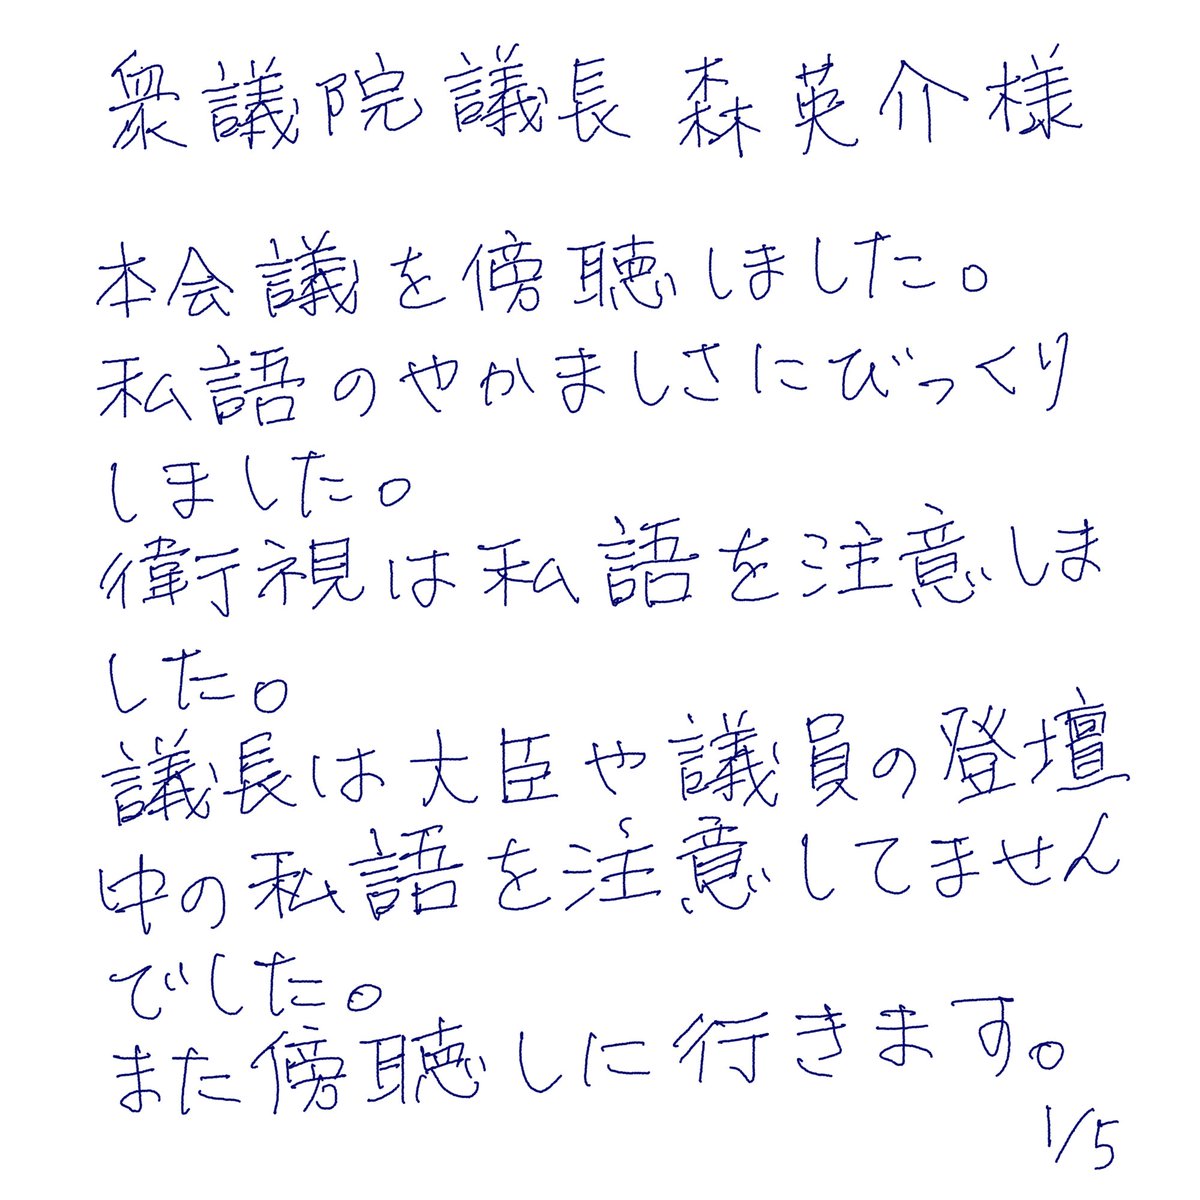 衆議院議長 森英介様
本会議を傍聴しました。
私語のやかましさにびっくり
しました。
衛視は私語を注意しま
した。
議長は大臣や議員の登壇
中の私語を注意してません
でした。
また傍聴しに行きます。
1/5